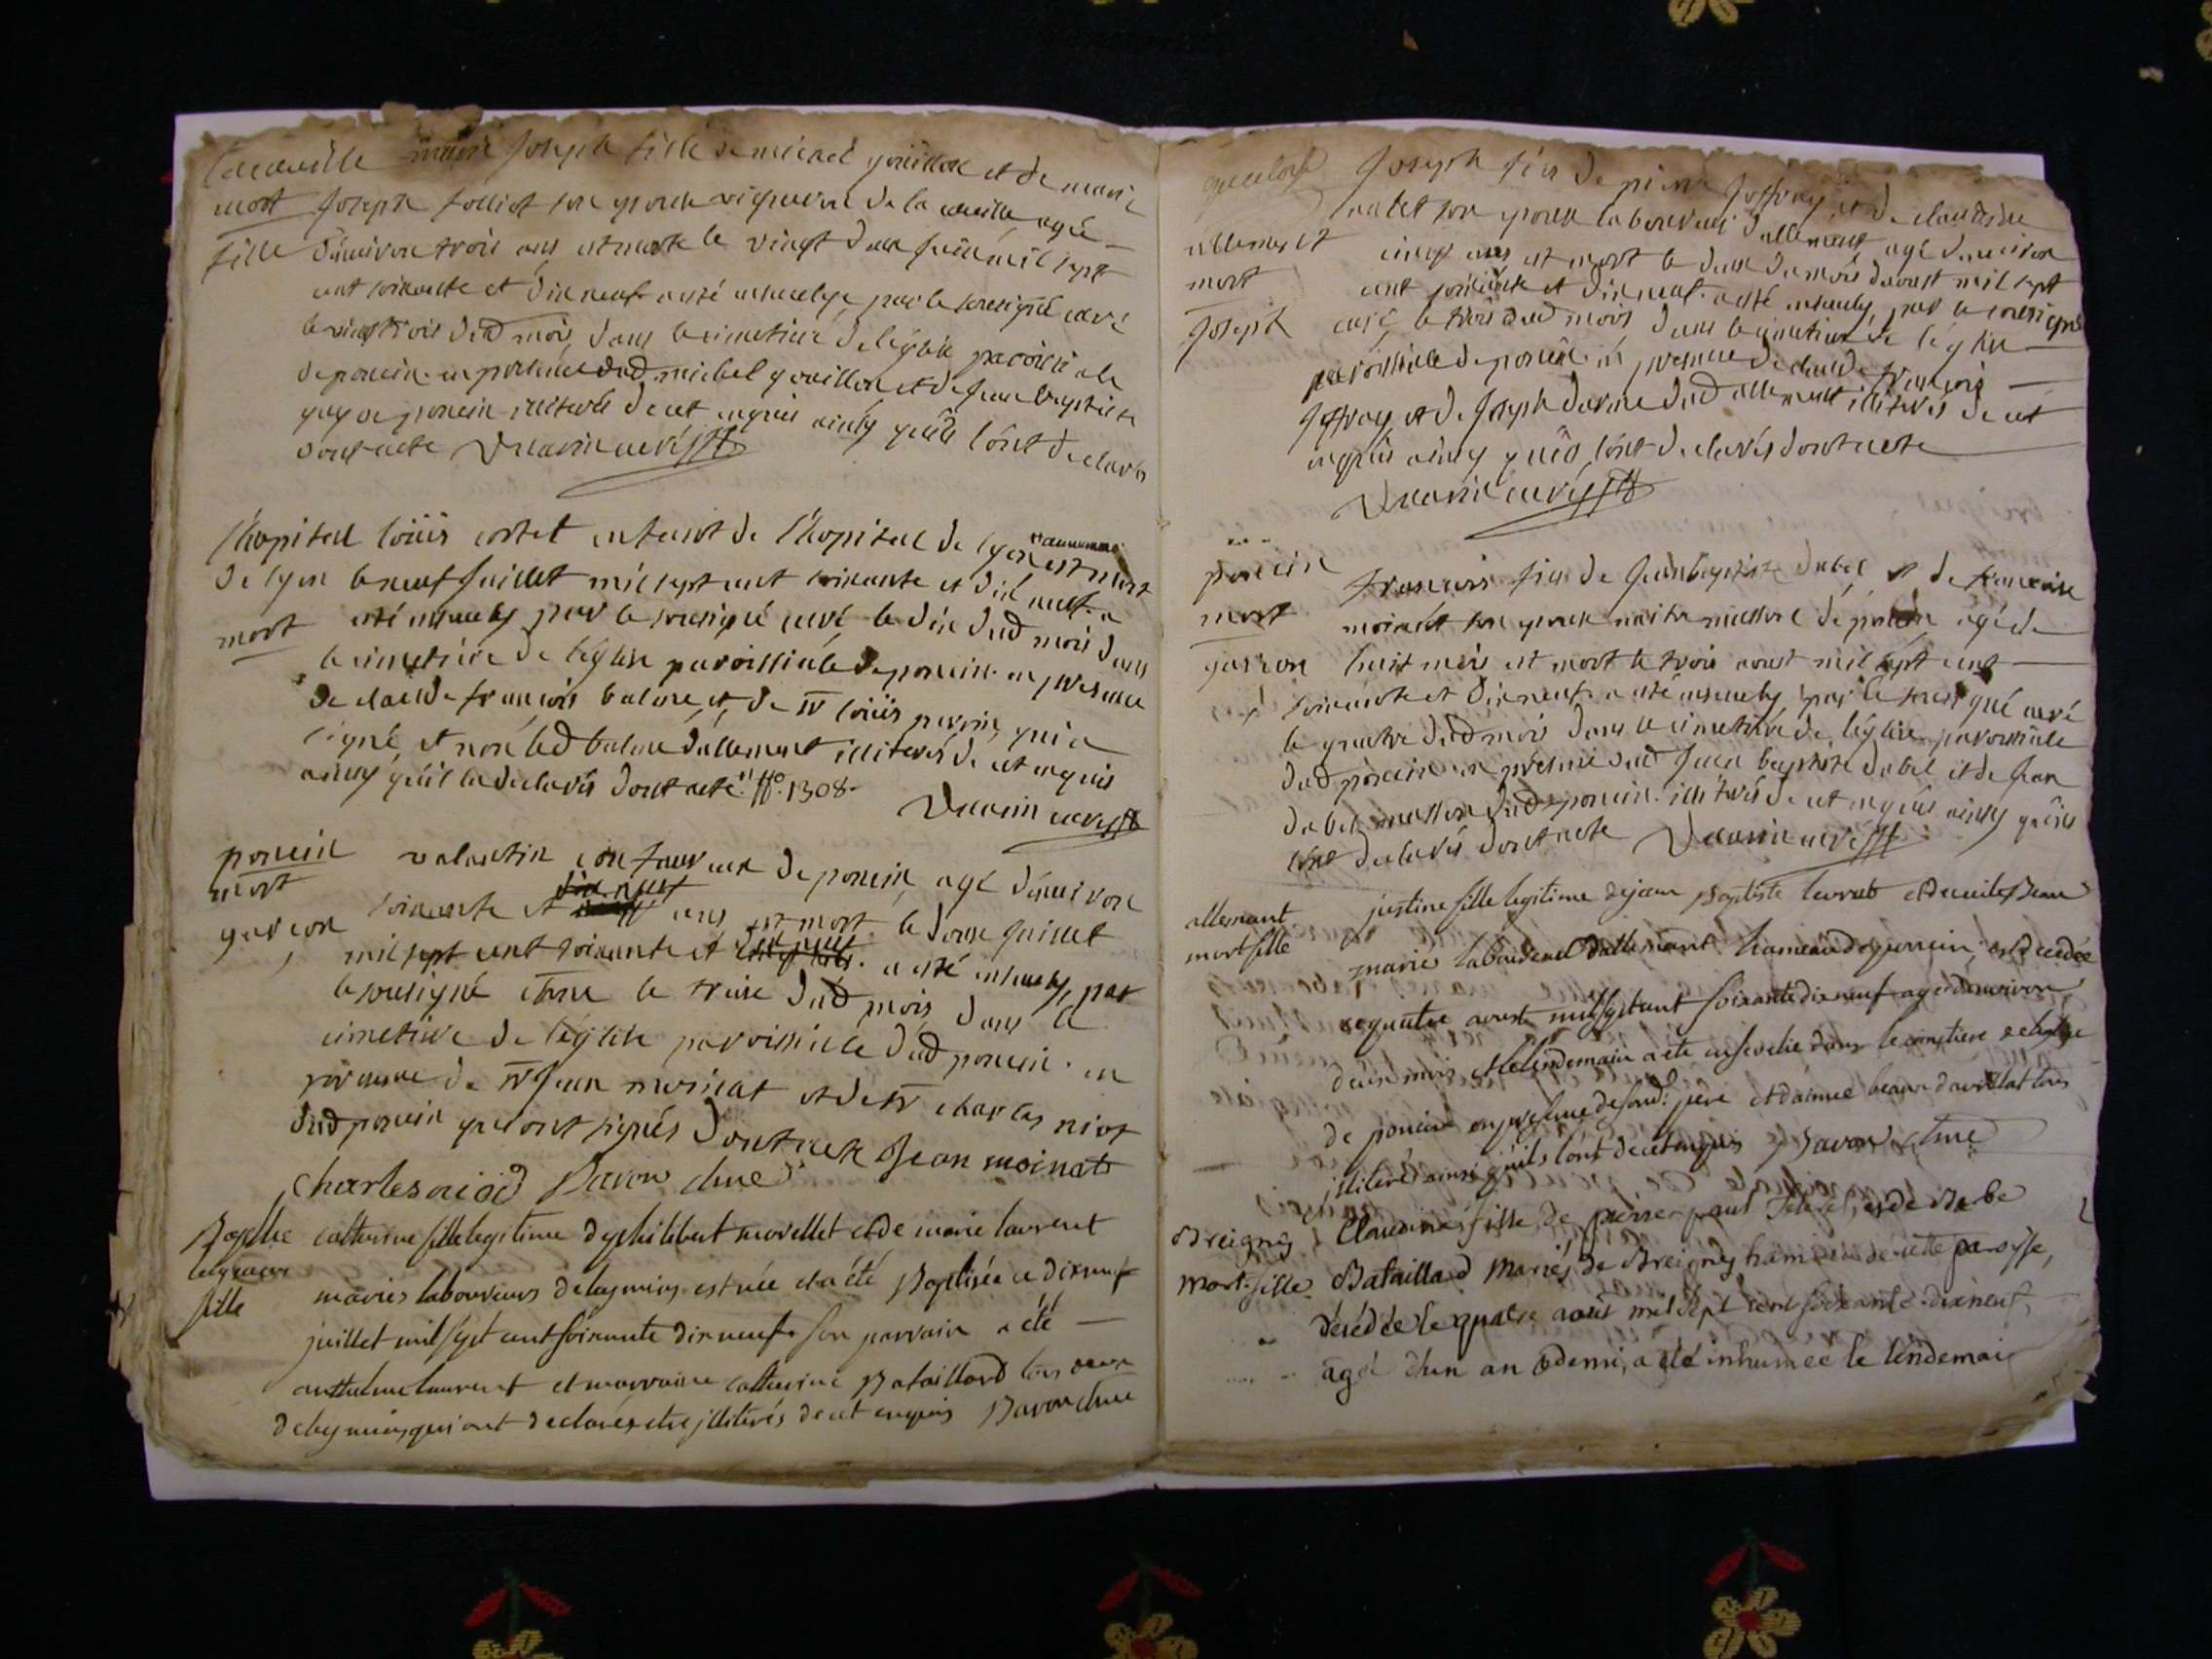 marie Joseph fille de michel goüillon et de marie
mort Joseph folliet son epouse vigneron de la cueille agée
fille d'environ trois ans est morte le vingt deux juin mil sept
cent soixante et dix neuf a esté ensevelye par le sousigné curé
le vingt trois dud mois dans le cimetiere de léglise paroissiale
de poncin en presence dud michel gouillon et de jean baptiste
de poncin illiterés de cet enquis ainsy qu'ils l'ont declarés
dont acte curé
l'hopital loüis cortet enfant de l'hopital de lyon est mort
de lyon le neuf juillet mil sept cent soixante et dix neuf a
mort esté ensevely par le sousigné curé le dix dud mois dans
le cimetière de léglise paroissiale de poncin en presence
de claude françois balme et de sr loüis perrin qui a
signé et non led balme d'allement illiterés de cet enquis
ainsy qu'il la declarés dont acte n° 1308
curé
poncin valentin de poncin agé d'environ
mort soixante et dix neuf ans est mort le douze juillet
garcon mil sept cent soixante et dix neuf a esté ensevely par
le sousigné le treize dud mois dans le
cimetiere de léglise paroissiale dud poncin en
presence de sr jean moinat et de sr charles niod
dud poncin qui ont signés dont acte Jean moinat
Charles niod Savon
Baptême catherine fille legitime de philibert morellet et de marie laurent
leymieux mariés laboureurs de leymieux est née et a été Baptisée ce dixneuf
fille juillet mil sept cent soixante dix neuf son parrain a été
anthelme laurent et marraine catherine Bataillard tous deux
de leymieux qui ont declarés etre illiterés de cet enquis Savon
Joseph fils de pierre Joffray et de claudine
son epouse laboureur d'allement agé d'environ
allement cinq ans est mort le deux du mois daoust mil sept
mort cent soixante et dix neuf a esté ensevely par le sousigné
Joseph curé le trois dud mois dans le cimetiere de léglise
paroissiale de poncin en presence de claude françois
Joffray et de Joseph dud allement illiterés de cet
enquis ainsy qu'ils lont declarés dont acte
curé
poncin françois fils de Jean baptiste dubel et de françoise
mort son epouse maitre masson de poncin agé de
garcon huit mois est mort le trois aoust mil sept cent
soixante et dix neuf a esté ensevely par le sousigné curé
le quatre dud mois dans le cimetiere de léglise paroissiale
dud poncin en presence dud Jean baptiste dubel et de Jean
dubel masson dud poncin illiterés de cet enquis ainsy qu'ils
lont declarés dont acte curé
allemant justine fille legitime de jean Baptiste et de
mort fille marié laboureur d'allemant hameau de poncin, est decedée
ce quatre aoust mil sept cent soixante dix neuf agée d'environ
deux mois et le lendemain a ete ensevelie dans le cimetiere
de poncin en presence de soud. père et
illiterés ainsi qu'ils l'ont de cet enquis Savon
Breigney Claudine fille de pierre paul et de
mort fille Bataillard mariés de Breigney hameau de cette paroisse,
décédée le quatre août mil sept cent soixante-dixneuf,
agée d'un an et demi, a été inhumée le lendemain